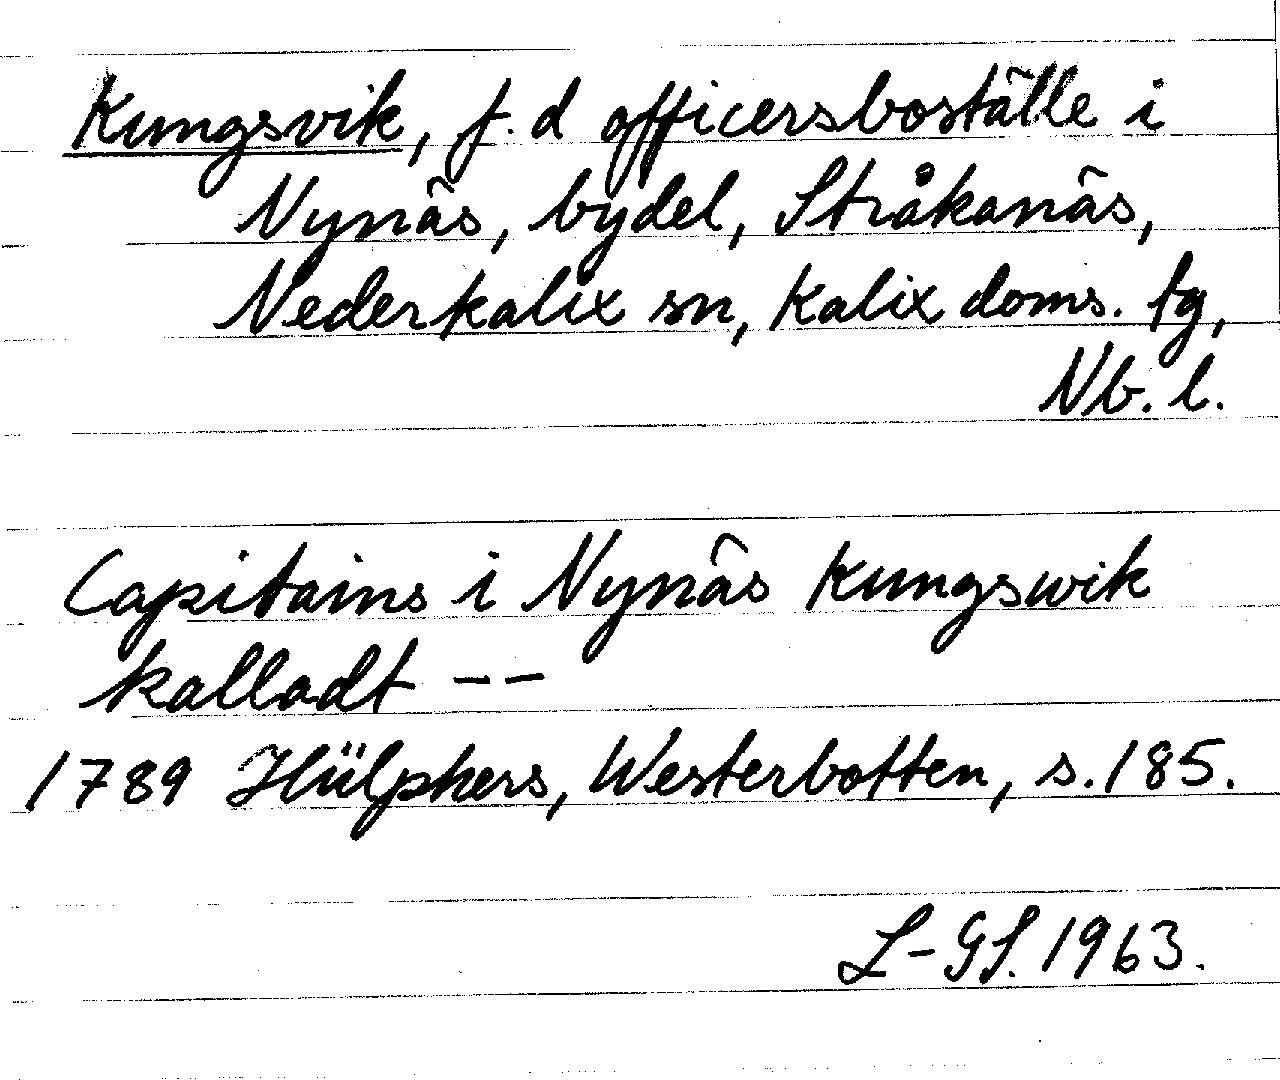 Kungsvik, f.d officersboställe i
Nynäs, bydel, Stråkanäs,
Nederkalix sn, Kalix doms. tg,
Nb. l.
Capitains i Nynäs Kungswik
kalladt --
1789 Hülphers, Westerbotten, s. 185.
L-GS. 1963.